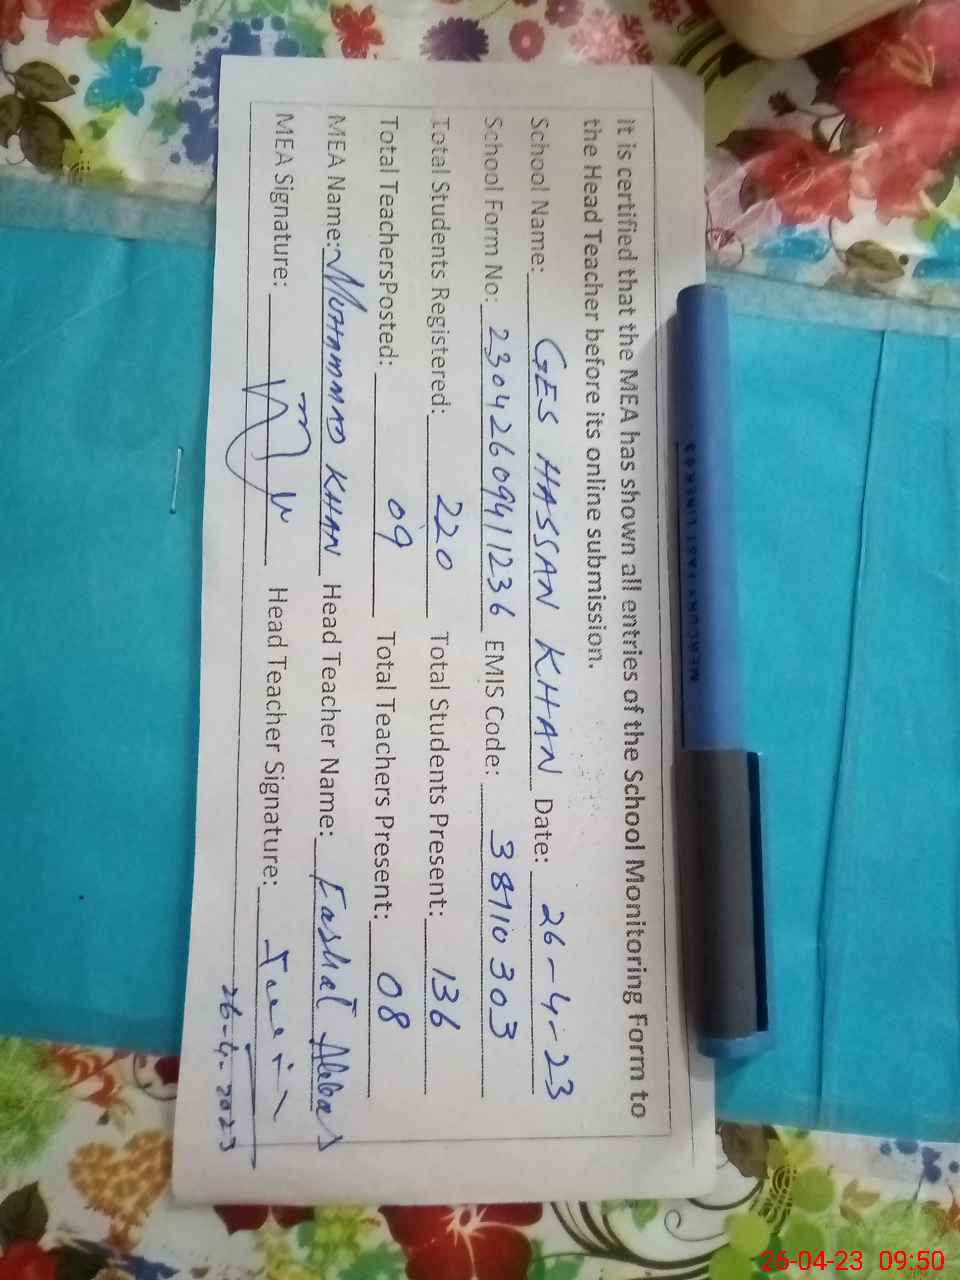 It is certified that the MEA has shown all entries of the School Monitoring Form to
the Head Teacher before its online submission.
School Name: GES HASSAN KHAN Date: 26-4-23
School Form No: 23042609411236 EMIS Code: 38110303
Total Students Registered: 220 Total Students Present: 136
Total TeachersPosted: 09 Total Teachers Present: 08
MEA Name: MUHAMMAD KHAN Head Teacher Name: Abbas
MEA Signature: Head Teacher Signature:
26-4-2023
26-04-23 09:50